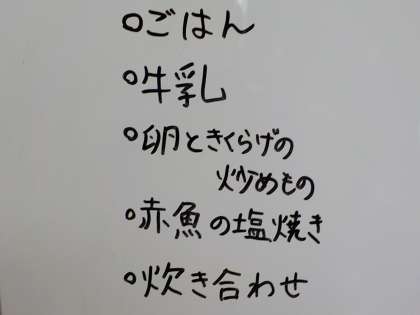 ○ごはん
○牛乳
○卵ときくらげの
炒めもの
○赤魚の塩焼き
○炊き合わせ